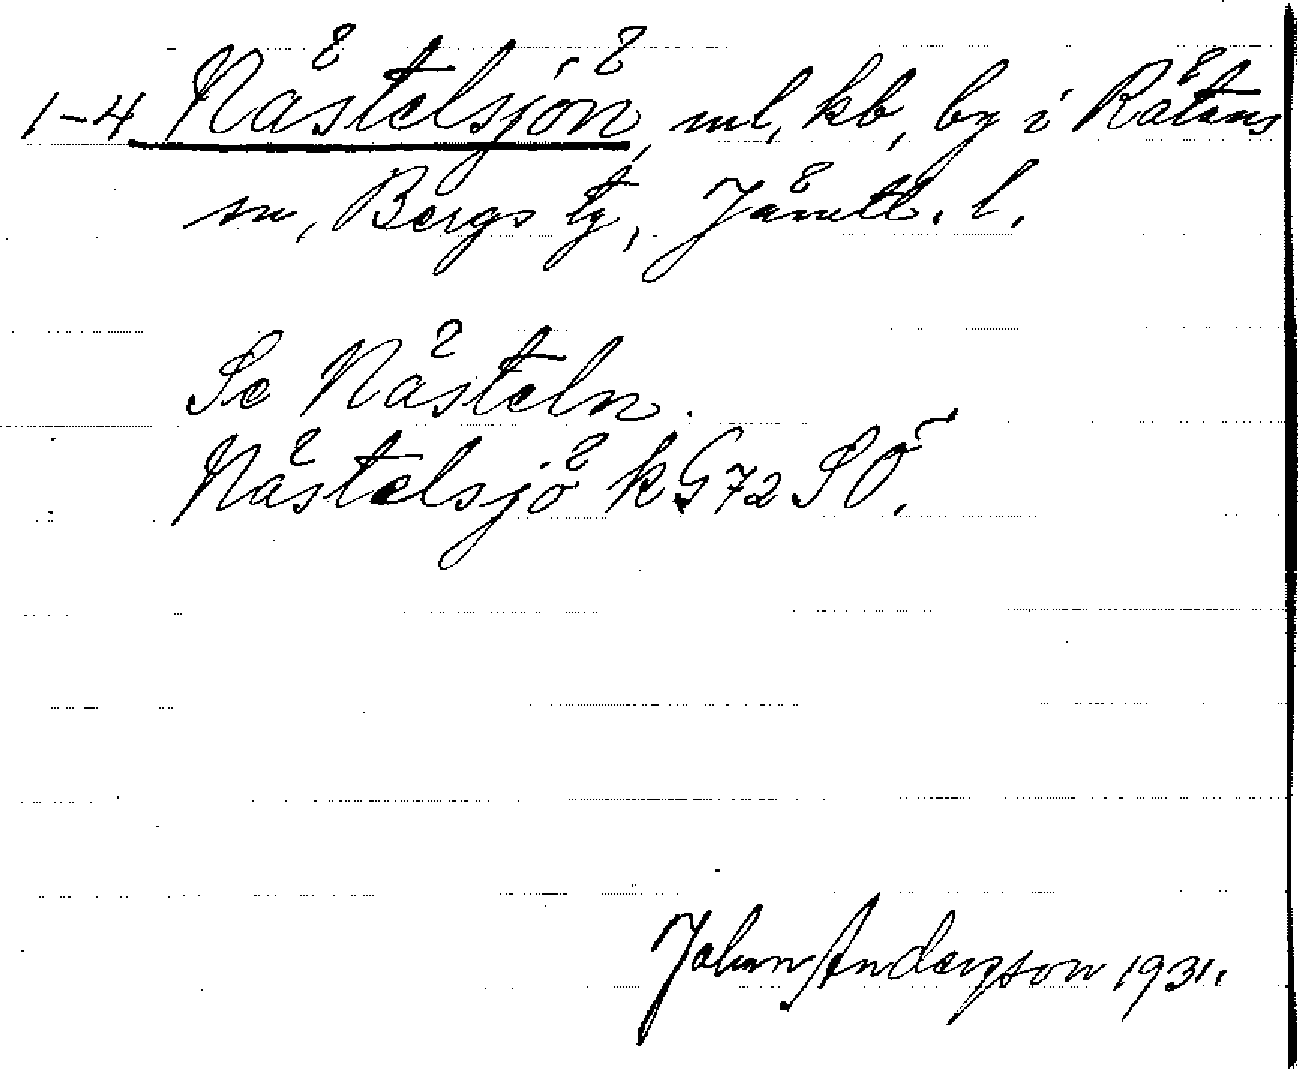 1-4 Nästelsjön, ml, kb, by i Rätans
sn, Bergs tg, Jämtl. l.
Se Nästeln.
Nästelsjö k G72 SÖ.
Johan Andersson 1931.